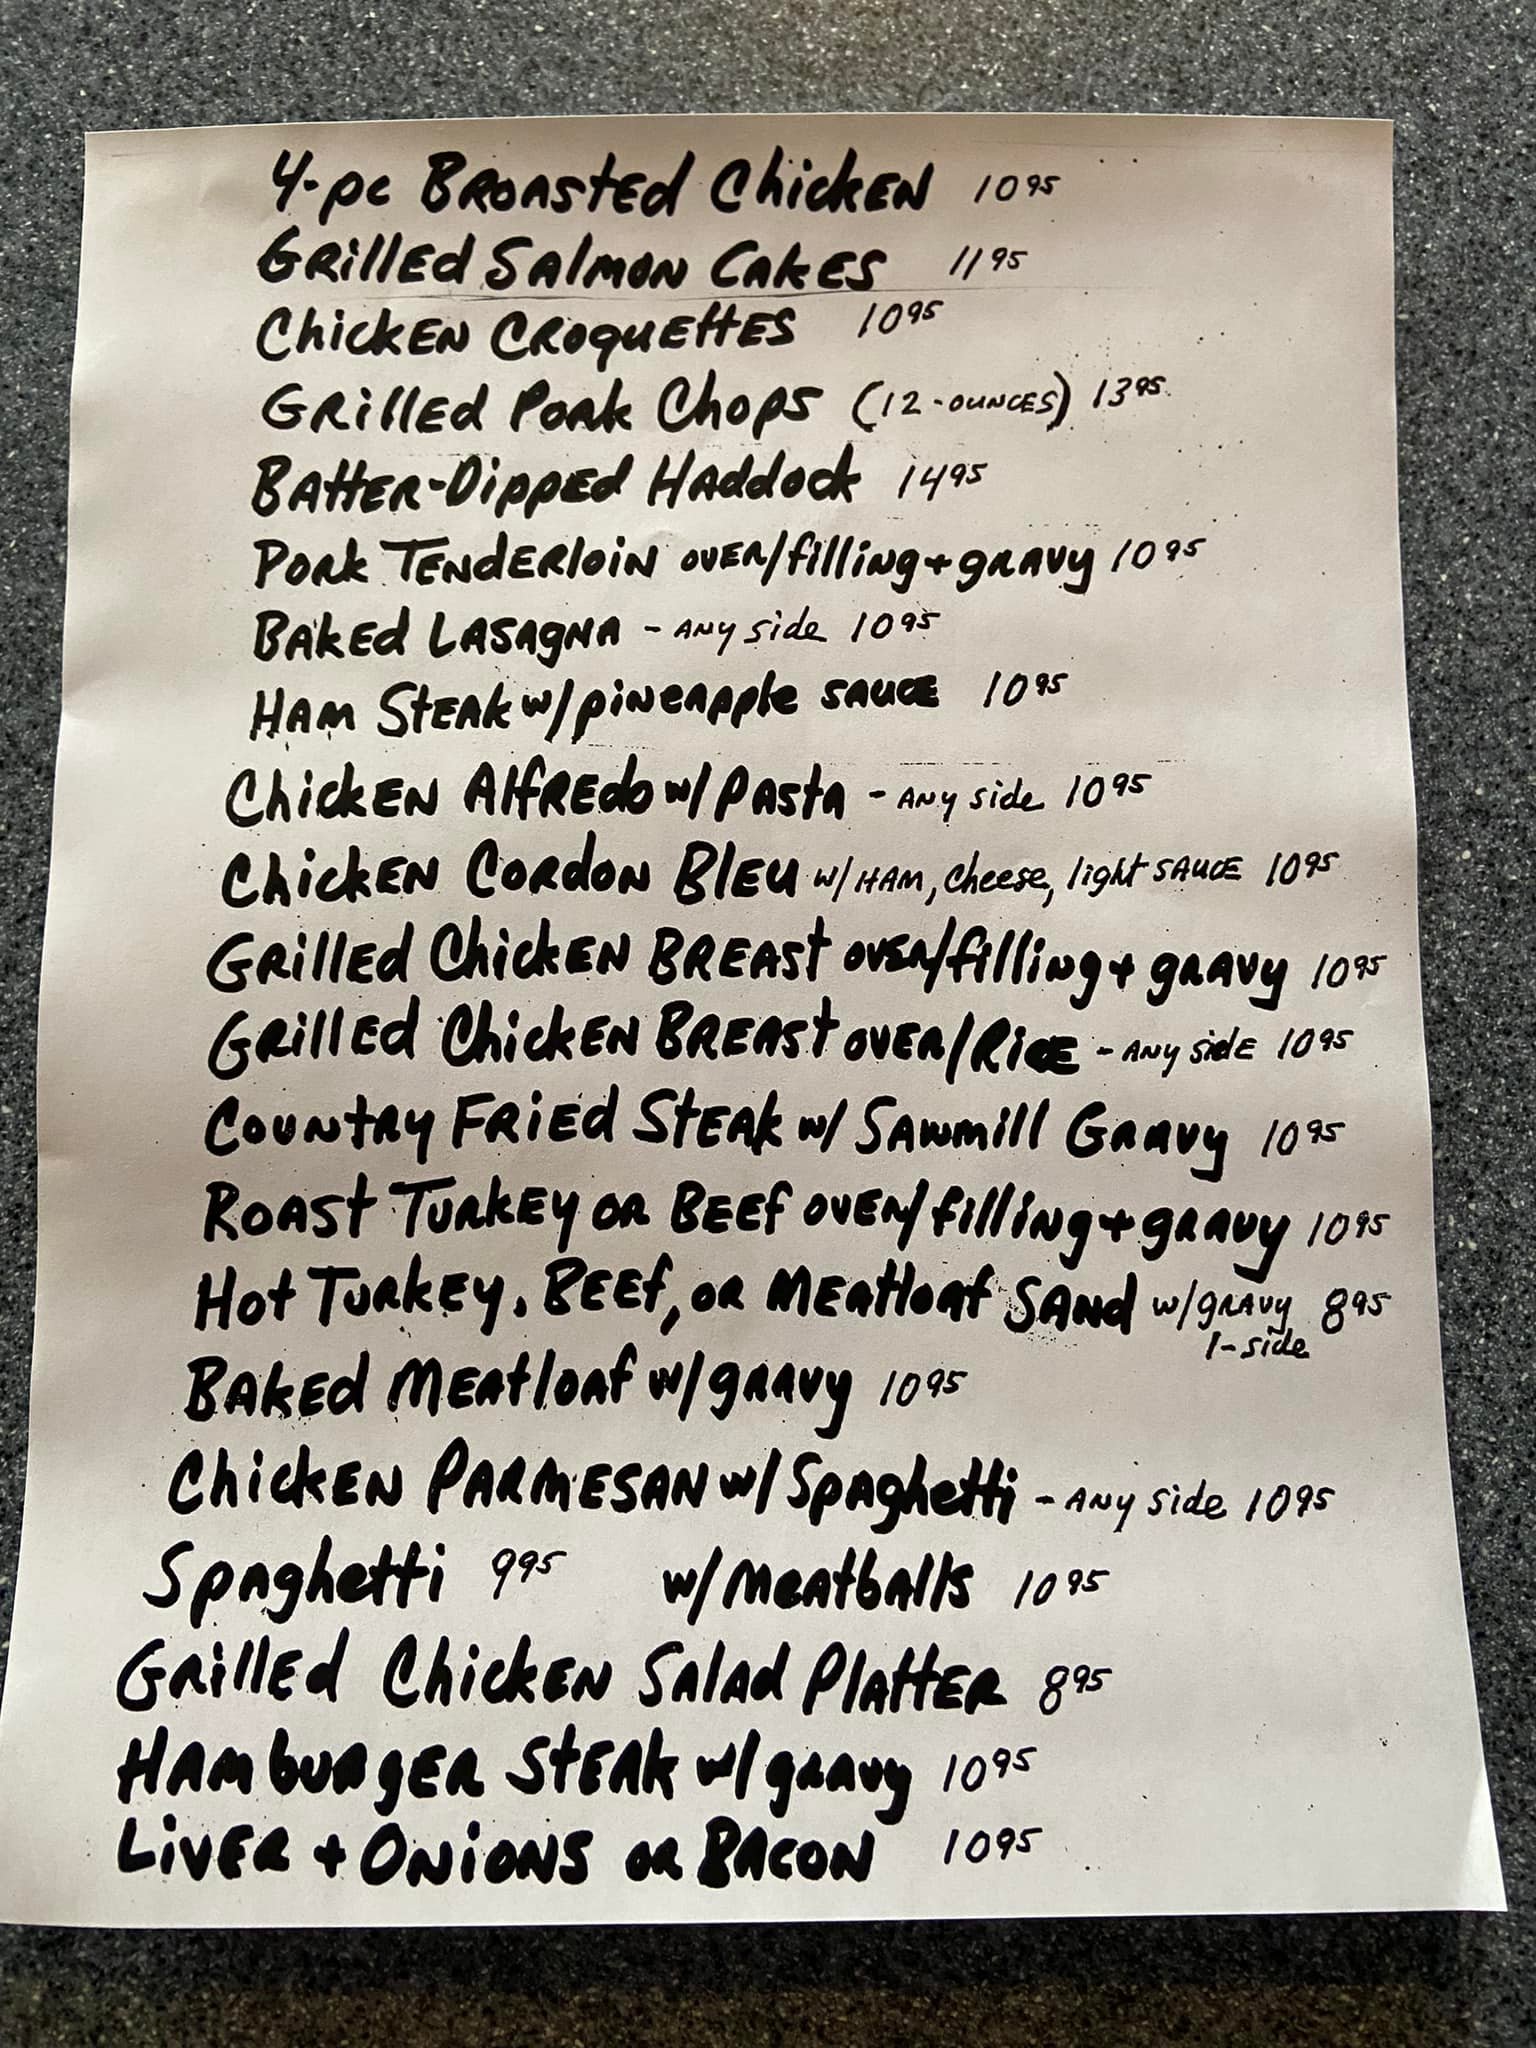 4-pc Broasted Chicken 10 95
Grilled Salmon Cakes 11 95
Chicken Croquettes 10 95
Grilled Pork Chops (12-ounces) 13 95
Batter-Dipped Haddock 14 95
Pork Tenderloin over/filling + gravy 10 95
Baked Lasagna - any side 10 95
Ham Steak w/pineapple sauce 10 95
Chicken Alfredo w/ Pasta - any side 10 95
Chicken Cordon Bleu w/ Ham, cheese, light sauce 10 95
Grilled Chicken Breast over/filling + gravy 10 95
Grilled Chicken Breast over/Rice - any side 10 95
Country Fried Steak w/ Sawmill Gravy 10 95
Roast Turkey or Beef over/filling + gravy 10 95
Hot Turkey, Beef, or Meatloaf Sand w/gravy 8 95
1-side
Baked Meatloaf w/gravy 10 95
Chicken Parmesan w/ Spaghetti - any side 10 95
Spaghetti 9 95 w/ Meatballs 10 95
Grilled Chicken Salad Platter 8 95
Hamburger Steak w/ gravy 10 95
Liver + Onions or Bacon 10 95